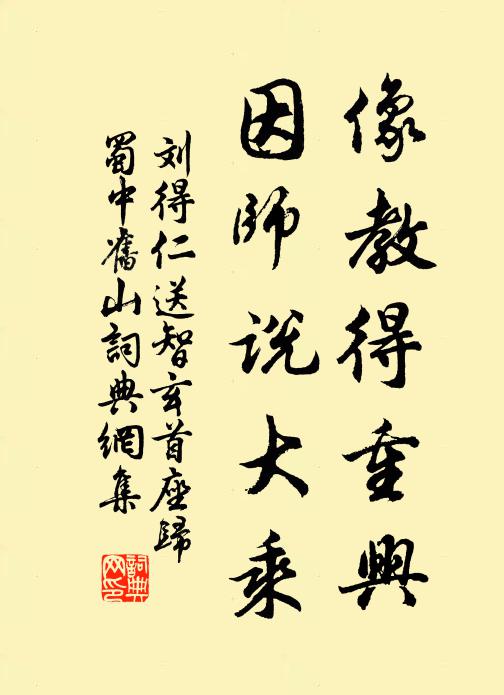 像教得重興
因師説大乘
刘得仁送智玄首座歸
蜀中舊山詞典網集
詞典网印